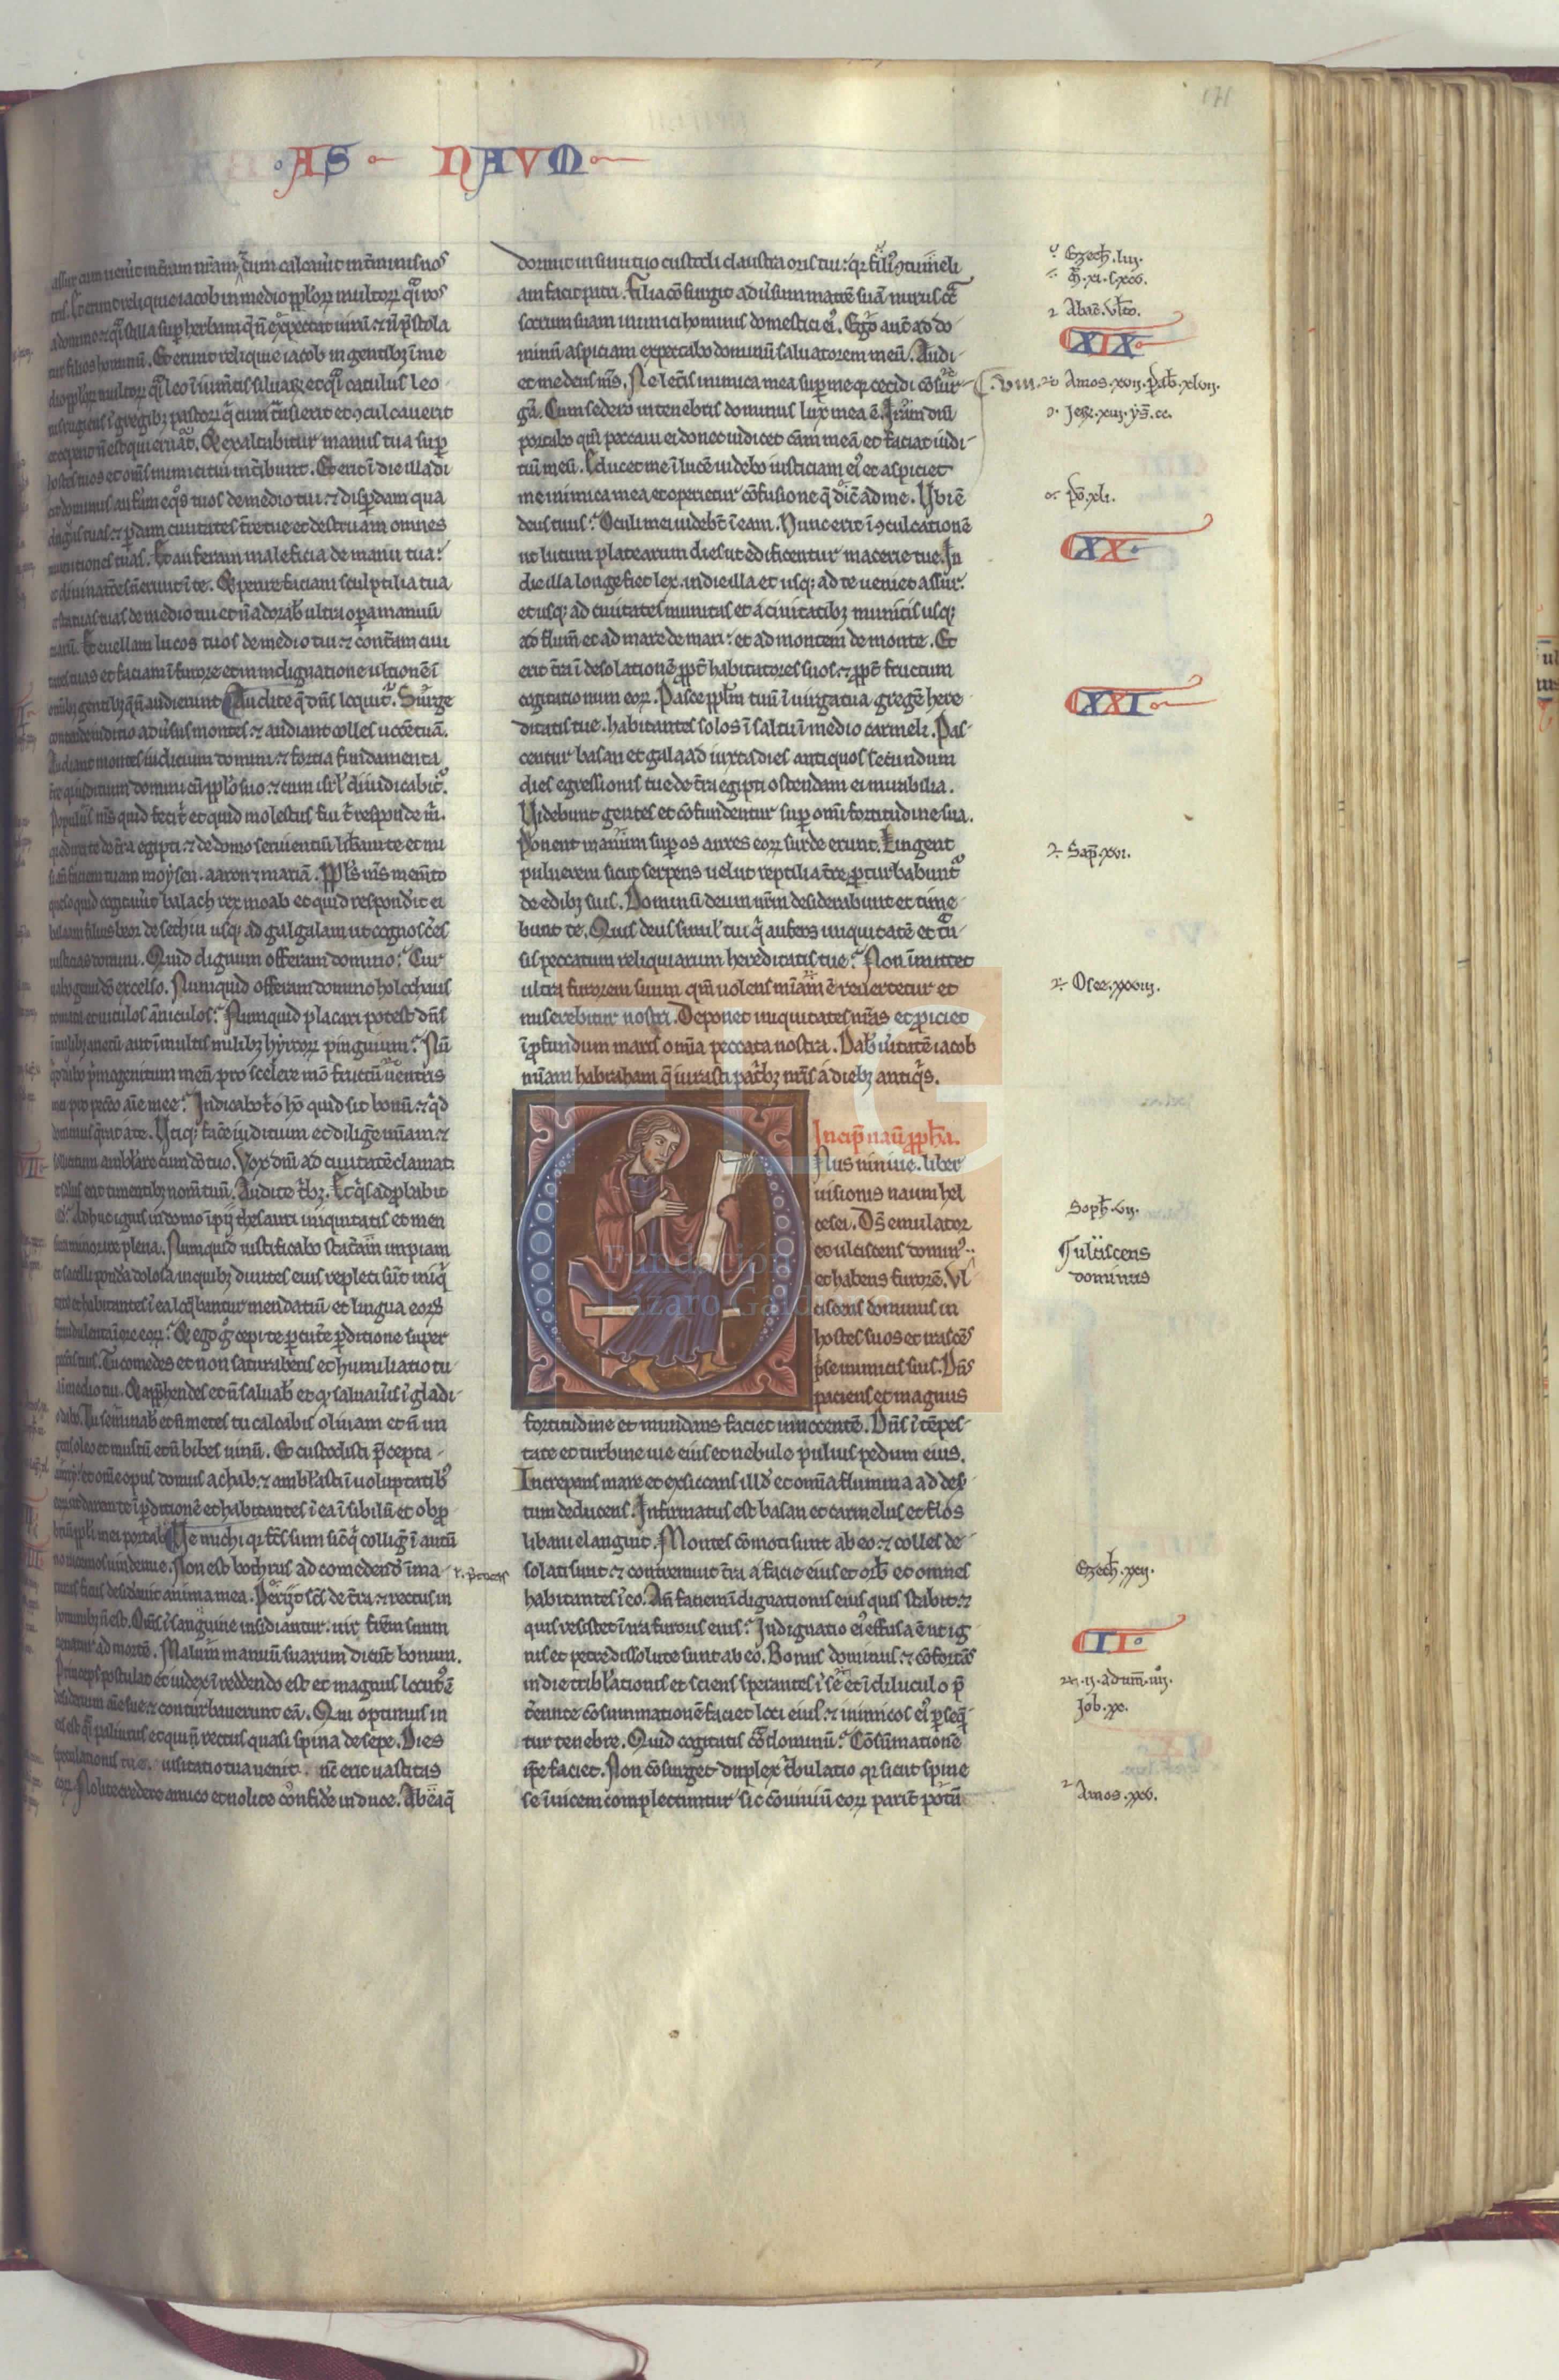 ·AS· NAVM·
171
assur cum uen͛it in t͛ram nr̄am ⁊ cum calcau͛it in t͛ra munus nos
tris. Et erunt reliquie iacob in medio ppl̓oꝝ multoꝝ q̃i ros
a domino ⁊ q̃i stilla sup͛ herbam q̄ n̄ expectat uirū. ⁊ n̄ p̄stola
tur filios hominū. Et erunt reliquie iacob in gentibꝫ ī me
dio ppl̓oꝝ multoꝝ q̃i leo ī iūm̄tis siluaꝝ et q̃i catulus leo
nis rugiens ī gregibꝫ pastoꝝ q̄ cum t͛nsierit et ↄculcauerit
et cep͛it n̄ est qui eruat. Et exaltabitur manus tua sup͛
hostes tuos et om̄s inimici tui int͛ibunt. Et erit ī die illa di
cit dominus auferam eq̊s tuos de medio tui. ⁊ disp͛dam qua
drigas tuas. ⁊ p͛dam ciuitates t͛re tue et destruam omnes
munitiones tuas. Et auferam maleficia de manu tua
⁊ diuinat͛es n̄ erunt ī te. Et perire faciam sculptilia tua
⁊ statuas tuas de medio tui et n̄ adorab̓ ultra op͛a manuū
tuaꝝ. Et euellam lucos tuos de medio tui ⁊ cont͛am ciui
tates tuas et faciam ī furore et in indignatione ultionē ī
om̄ibꝫ gentibꝫ q̄ n̄ audierunt. Audite q̄ dn̄s loquit̃. Surge
contende iuditio adu͛sus montes ⁊ audiant colles uocē tuā.
Audiant montes iudicium domini. ⁊ fortia fundamenta
t͛re quia iuditium domini cū ppl̓o suo ⁊ cum isr̓l diiudicabit̃.
Popul̓s m̄s quid feci t̃ et quid molestus fui t̃ responde m̄.
quia eduxi te de t͛ra egipti ⁊ de domo seruientiū lib͛aui te et mi
si an̄ faciem tuam moysen. aaron ⁊ mariā. Ppl̓s m̄s mem̄to
queso quid cogitau͛it balach rex moab et quid respondit ei
balaam filius beor de sechim usq; ad galgalam ut cognosc͛es
iusticias domini. Quid dignum offeram domino? Cur
uabo genu dō excelso. Numquid offeram domino holochaus
tomata et uitulos āniculos? Numquid placari potest dn̄s
ī milibꝫ arietū aut ī multis milibꝫ hyrcoꝝ pinguium? Nū
q̄d dabo p̄mogenitum meū pro scelere mō fructū uentris
mei pro pecc̄o aīe mee? Indicabo t̃ o hō quid sit bonū. ⁊ q̄d
dominus q̄rat a te. Utiq; fac͛e iuditium et dilig͛e mīam ⁊
sollicitum ambl̓are cum dō tuo. Vox dn̄i ad ciuitatē clamat.
⁊ salus erit timentibꝫ nom̄ tuū. Audite t͛bꝫ. Et q̄s adp̱babit
id? Adhuc ignis in domo īpij thesauri iniquitatis et men
sura minor ire plena. Numquid iustificabo stat͛am impiam
et sacelli pond͛a dolosa in quibꝫ diuites eius repleti sūt iniq̄
tate et habitantes ī ea loq̄bantur mendatiū et lingua eoꝝ
fraudulenta ī ore eoꝝ? Et ego g̊ cepi te p͛cut͛e p͛ditione super
peccatis tuis. Tu comedes et non saturaberis et humiliatio tu
a ī medio tui. Et app͛hendes et n̄ saluab̓ et q̊s saluau͛is ī gladi
ū dabo. Tu seminab̓ et n̄ metes tu calcabis oliuam et n̄ un
g͛is oleo et mustū et n̄ bibes uinū. Et custodisti p̄cepta
amri et om̄e opus domus achab. ⁊ ambl̓asti ī uoluptatibꝫ
eoꝝ ut darem te ī p͛ditionē et habitantes ī ea ī sibilū et obp̱
briū ppl̓i mei portab̓. Ue michi qꝛ fc̄s sum sic̄ q̄ collig̃ ī autū
no racemos uindemie. Non est bothrus ad comedend̓ īma
turas ficus desid͛auit anima mea. Periijt sc̄s de t͛ra. ⁊ rectus in
hominibꝫ n̄ est. Om̄s ī sanguine insidiantur. uir fr̄em suum
uenatur ad mortē. Malum manuū suarum dicūt bonum.
Princeps postulat et iudex ī reddendo est et magnus locut̃ ē
desiderium aīe sue ⁊ conturbauerunt eā. Qui optimus in
eis est q̃i paliurus et qui n̄ rectus quasi spina de sepe. Dies
speculationis tue. uisitatio tua uenit. nc̄ erit uastitas
eoꝝ. Nolite credere amico et nolite cōfid͛e in duce. Ab ea q̄
dormit in sinu tuo custodi claustra oris tui. qꝛ fili͛ ↄtumeli
am facit patri. Filia cōsurgit adu͛sum matrē suā nurus ct̄
socrum suam inimici hominis domestici ei͛. Ego aut̄ ad do
minū aspiciam expectabo dominū saluatorem meū. Audi
et me deus m̄s. Ne let̄is inimica mea sup͛ me qꝛ cecidi cōsur
gā. Cum sedero in tenebris dominus lux mea ē. Iram dn̄i
portabo qm̄ peccaui ei donec iudicet cām meā et faciat iudi
tiū meū. Educet me ī lucē uidebo iusticiam ei͛ et aspiciet
me inimica mea et operietur cōfusione q̄ dic̄ ad me. Ubi ē
deus tuus? Oculi mei uidebt̄ ī eam. Nunc erit ī ↄculcationē
ut lutum platearum dies ut edificentur macerie tue. In
die illa longe fiet lex. in die illa et usq; ad te ueniet assur.
et usq; ad ciuitates munitas et a ciuitatibꝫ munitis usq;
ad flum̄ et ad mare de mari. et ad montem de monte. Et
erit t͛ra ī desolationē p̱pt̄ habitatores suos. ⁊ p̱pt̄ fructum
cogitationum eoꝝ. Pasce ppl̓m tuū ī uirga tua gregē here
ditatis tue. habitantes solos ī saltu ī medio carmeli. Pas
centur basan et galaad iuxta dies antiquos secundum
dies egressionis tue de t͛ra egipti ostendam ei mirabilia.
Videbunt gentes et cōfundentur sup͛ omī fortitudine sua.
Ponent manum sup͛ os aures eoꝝ surde erunt. Lingent
puluerem sicut serpens uelut reptilia t͛re p͛turbabunt̃
de edibꝫ suis. Dominū deum nr̄m desiderabunt et time
bunt te. Quis deus simil̓ tui q̄ aufers iniquitatē et t͛n
sis peccatum reliquiarum hereditatis tue? Non īmittet
ultra furorem suum qm̄ uolens mīam ē reuertetur et
miserebitur nostri. Deponet iniquitates nr̄as et p̱iciet
ī p̱fundum maris om̄ia peccata nostra. Dab̓ u͛itatē iacob
mīam habraham q̄ iurasti pat͛bꝫ nr̄is a diebꝫ antiq̄s.
Incip̄ naū p̱ph̄a.
Nus niniue. liber
uisionis naum hel
cesei. Ds̄ emulator
et ulciscens domin͛
et habens furorē. Ul
ciscens dominus in
hostes suos et irascēs
ip̄se inimicis suis. Dn̄s
paciens et magnus
fortitudine et mundans faciet innocentē. Dn̄s ī tēpes
tate et turbine uie eius et nebule puluis pedum eius.
Increpans mare et exsiccans illd̓ et om̄ia flumina ad des͛
tum deducens. Infirmatus est basan et carmelus et flos
libani elanguit. Montes cōmoti sunt ab eo. ⁊ colles de
solati sunt. ⁊ contremuit t͛ra a facie eius et orb̓ et omnes
habitantes ī eo. An̄ faciem īdignationis eius quis stabit. ⁊
quis resistet ī ira furoris eius? Indignatio ei͛ effusa ē ut ig
nis et petre dissolute sunt ab eo. Bonus dominus. ⁊ cōfortās
in die tribl̓ationis et sciens sperantes ī se et ī diluculo p̄
t͛eunte cōsummationē faciet loci eius. ⁊ inimicos ei͛ p͛seq̄
tur tenebre. Quid cogitatis cōt͛ dominū? Cōsūmationē
ip̄e faciet. Non cōsurget duplex t͛bulatio qꝛ sicut spine
se īuicem complectuntur sic cōuiuiū eoꝝ parit̃ potū
Ezech̓. lui.
Abac̄. ult̄o.
XIX·
.viii.
Amos. xvii. p̄ab̓. xlvii.
Jeꝝ. xvi. ys̄. cc.
p̄o. xli.
XX·
XXI·
Sap̄. xvi.
Osee. xxxiii.
Soph̓. vii.
ulciscens
dominus
Ezech̓. xxii.
II·
Job. xx.
Amos. xxv.
FLG
Fundación
Lázaro Galdiano